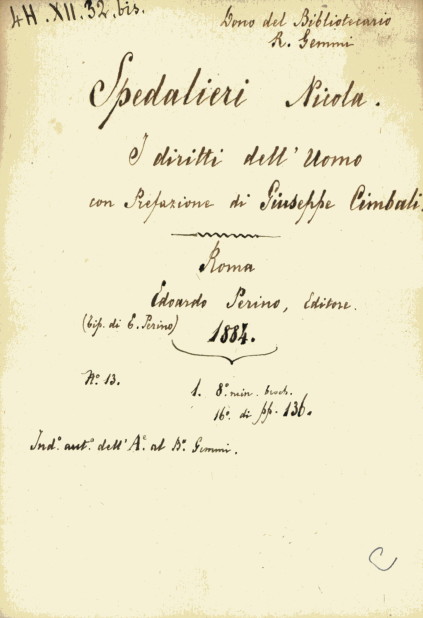 4H.XII.32.bis.
Dono del Bibliotecario
R. Gemmi
Spedalieri Nicola.
I diritti dell'Uomo
con Prefazione di Giuseppe Cimbali.
Roma
Edoardo Perino, Editore.
(tip. di E. Perino)
1884.
N.º 13.
1. 8º. min. broch.
16º. di pp. 136.
Ind.º aut.º dell'A.º al B.º Gemmi.
C